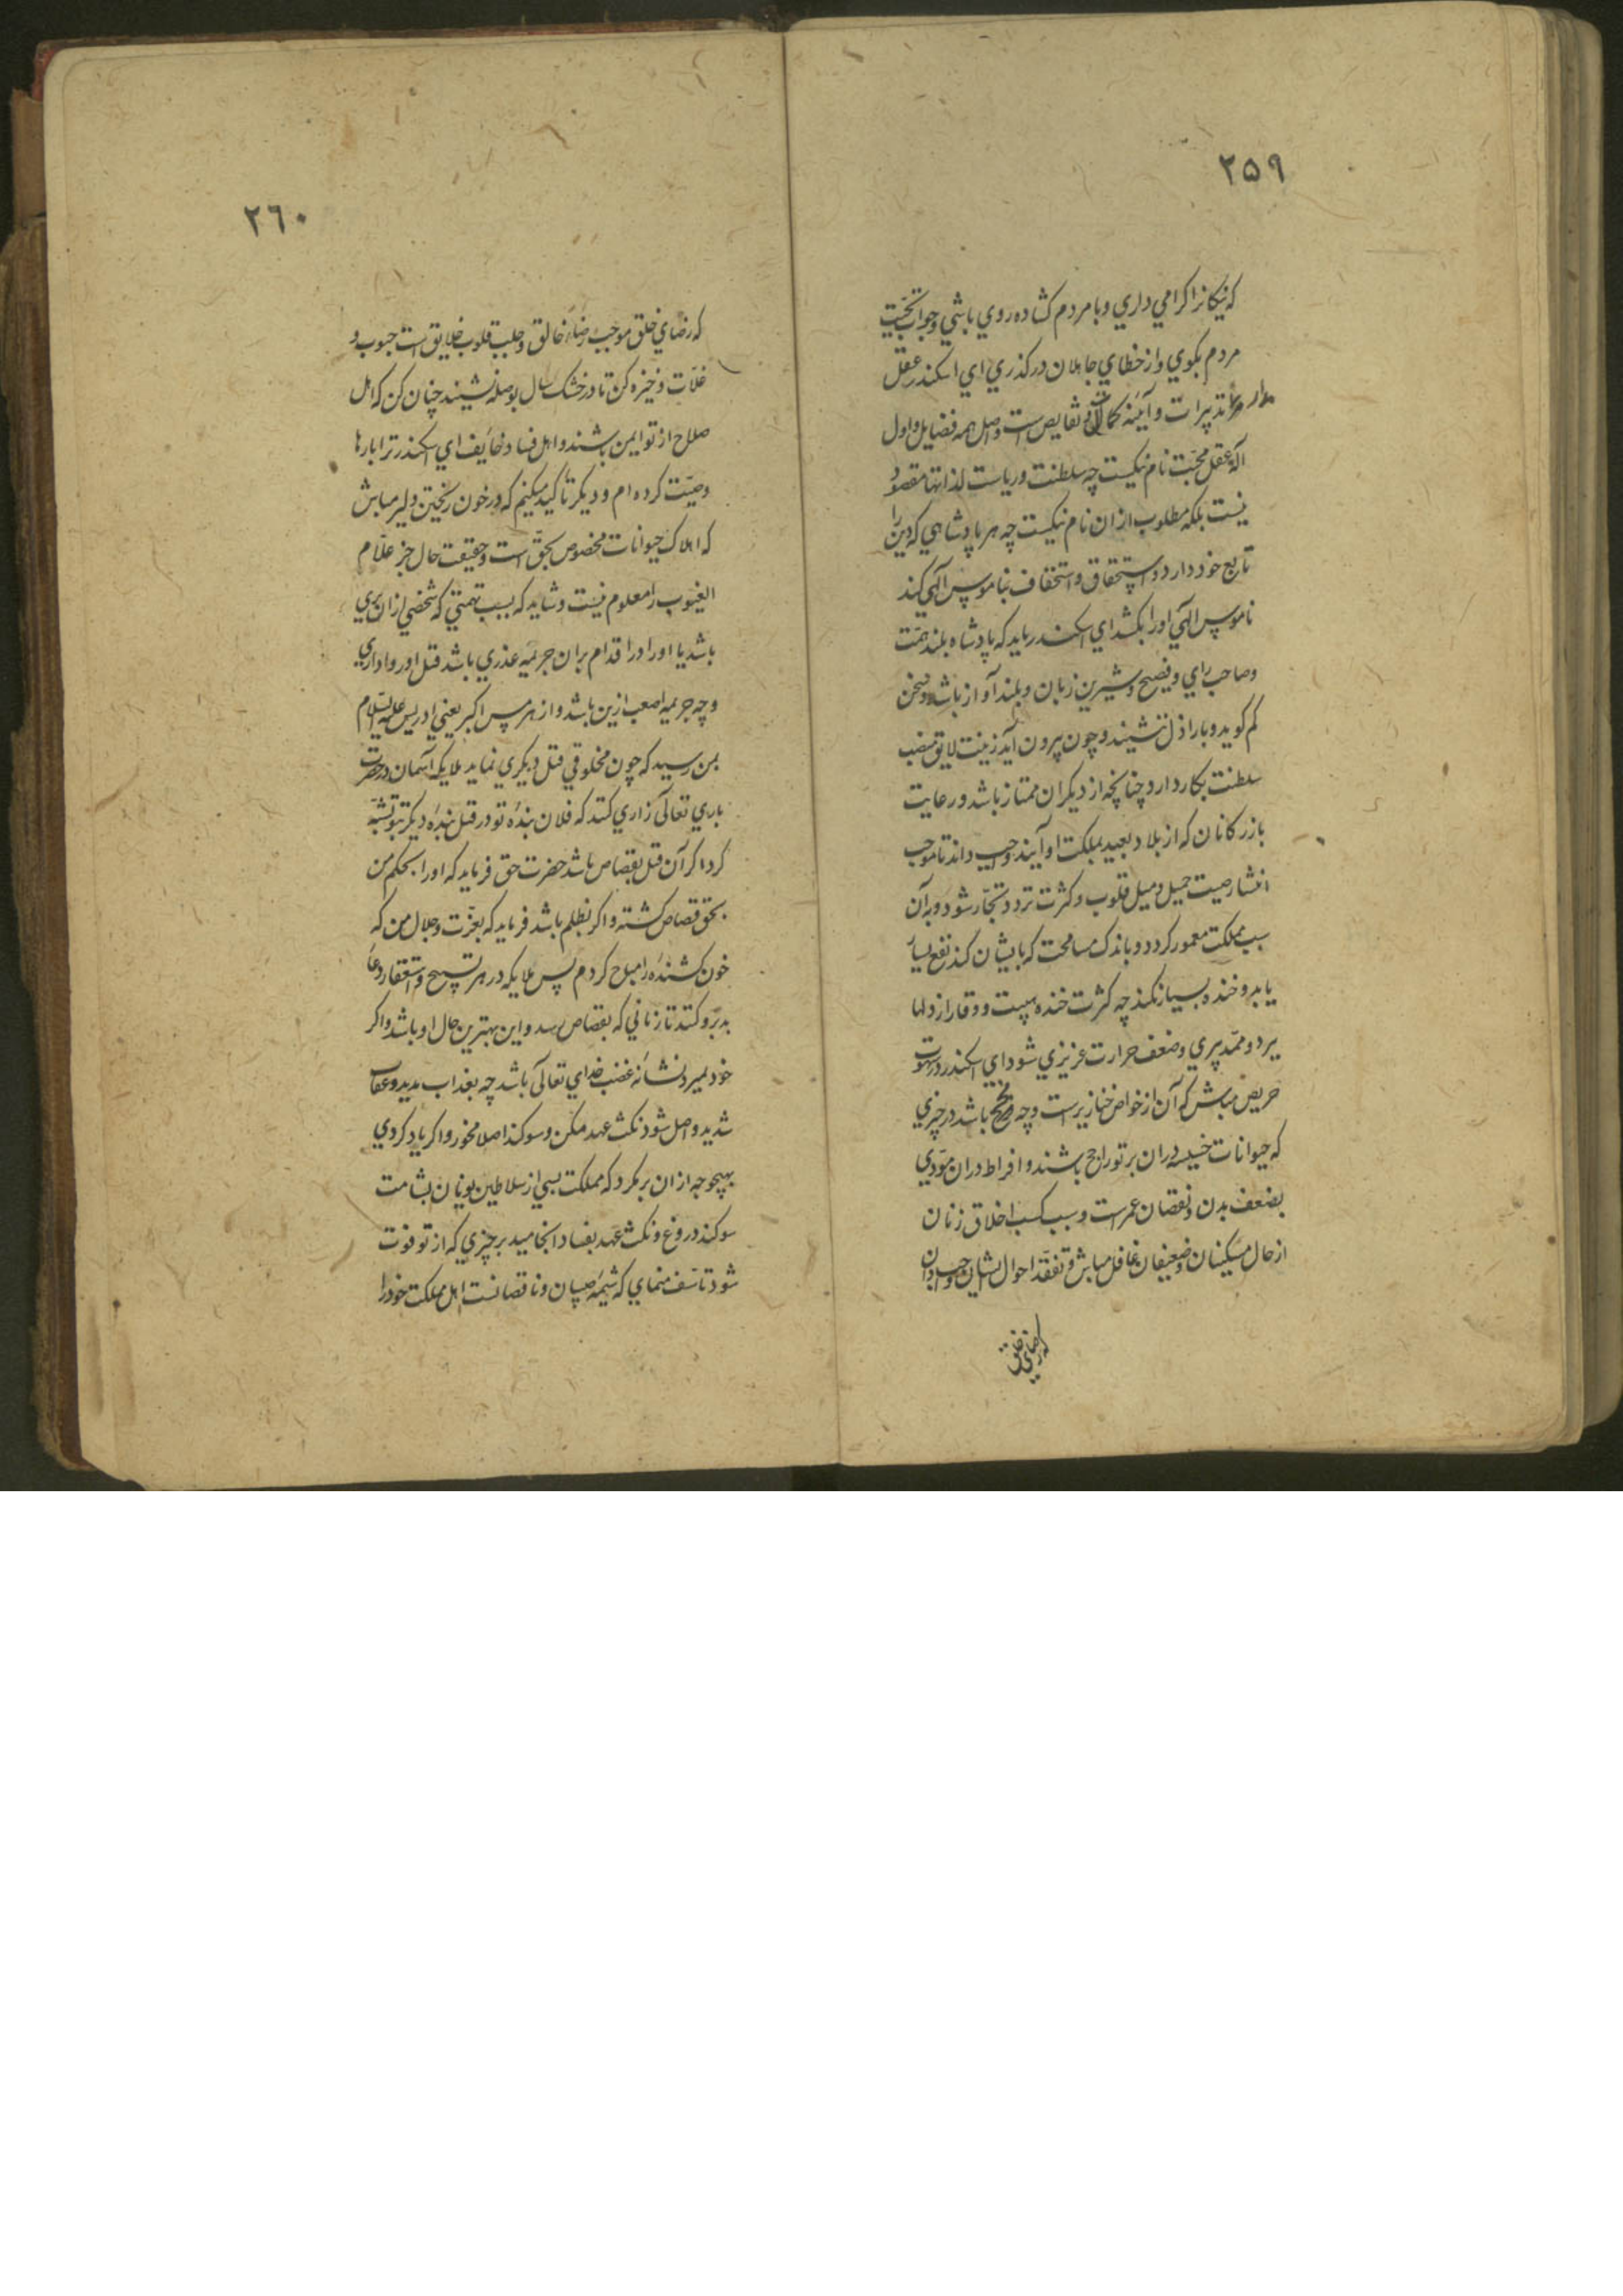 ۲۵۹
که نیکانرا کرامی داری و با مردم کشاده روی باشی و جواب تحیت
مردم بکوی و از خطای جاهلان درکذری ای اسکندر عقل
مدار تدبیرات و آیینه کمالات و نقایص است و اصل همه فضایل و اول
آلة عقل محبت نام نیکیست چه سلطنت و ریاست لذاتها مقصود
نیست بلکه مطلوب ازان نام نیکیست چه هر پادشاهی که دین را
تابع خود دارد و استحقاق و استخفاف بناموس الهی کند
ناموس الهی اورا بکشد ای اسکندر باید که پادشاه بلند همت
و صاحب رای و فصیح و شیرین زبان و بلند آواز باشد و سخن
کم کوید و با اراذل ننشیند و چون بیرون آید زینت لایق منصب
سلطنت بکار دارد چنانچه از دیکران ممتاز باشد و رعایت
بازرکانان که از بلاد بعید بملکت او آیند واجب داند تا موجب
انتشار صیت جمیل و میل قلوب و کثرت تردد تجار شود و به آن
سبب مملکت معمور کردد و باندک مسامحت که بایشان کند نفع بسیار
یابد و خنده بسیار نکند چه کثرت خنده هیبت و وقار از دلها
ببرد و ممد پیری و ضعف حرارت غریزی شود ای اسکندر در شهوت
حریص مباش که آن از خواص خنازیر است و چه باشد در چیزی
که حیوانات خسیسه دران بر تو راجح باشند و افراط دران مودی
بضعف بدن و نقصان عمر است و سبب کسب اخلاق زنان
از حال مسکینان و ضعیفان غافل مباش و تفقد احوال ایشان واجب دان
که رضای خلق
۲۶۰
که رضای خلق موجب رضاء خالق و جلب قلوب خلایق است حبوب و
غلات ذخیره کن تا در خشک سال بوصله نشیند چنان کن که اهل
صلاح از تو ایمن باشند و اهل فساد خایف ای اسکندر ترا بارها
وصیت کرده ام و دیکر تاکید میکنم که در خون ریختن دلیر مباش
که اهلاک حیوانات مخصوص بحق است و حقیقت حال جز علام
الغیوب را معلوم نیست و شاید که بسبب تهمتی که شخصی ازان بری
باشد یا اورا در اقدام بران جریمه عذری باشد قتل او روا داری
و چه جریمه اصعب ازین باشد و از هرمس اکبر یعنی ادریس علیه السلام
بمن رسید که چون مخلوقی قتل دیکری نماید ملایکه آسمان در حضرت
باری تعالی زاری کنند که فلان بنده تو در قتل بنده دیکر بتو تشبه
کرد اکر آن قتل بقصاص باشد حضرت حق فرماید که اورا بحکم من
بحق قصاص کشته و اکر بظلم باشد فرماید که بعزت و جلال من که
خون کشنده را مباح کردم پس ملایکه در هر تسبیح و استغفار دعا
بد برو کنند تا زمانی که بقصاص رسد و این بهترین حال او باشد و اکر
خود بمیرد نشانه غضب خدای تعالی باشد چه بعذاب مدید و عقاب
شدید واصل شود نکث عهد مکن و سوکند اصلا مخور و اکر یاد کردی
بهیچ وجه ازان برمکرد که مملکت بسی از سلاطین یونان بشامت
سوکند دروغ و نکث عهد بفساد انجامید بر چیزی که از تو فوت
شود تاسف منمای که شیمه صبیان و ناقصانست اهل مملکت خود را